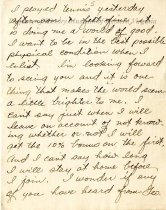 I played tennis yesterday
afternoon or first time it
is doing me a world of good.
I want to be in the best possible
physical condition when I
enlist. I'm looking forward
to seeing you and it is one
thing that makes the world seem
a little brighter to me. I
can't say just when I will
leave on account of not know-
ing whether or not I will
get the 10% bonus on the first.
And I can't say how long
I will stay at home before
I join. I wonder if any
of you have heard from Geo.